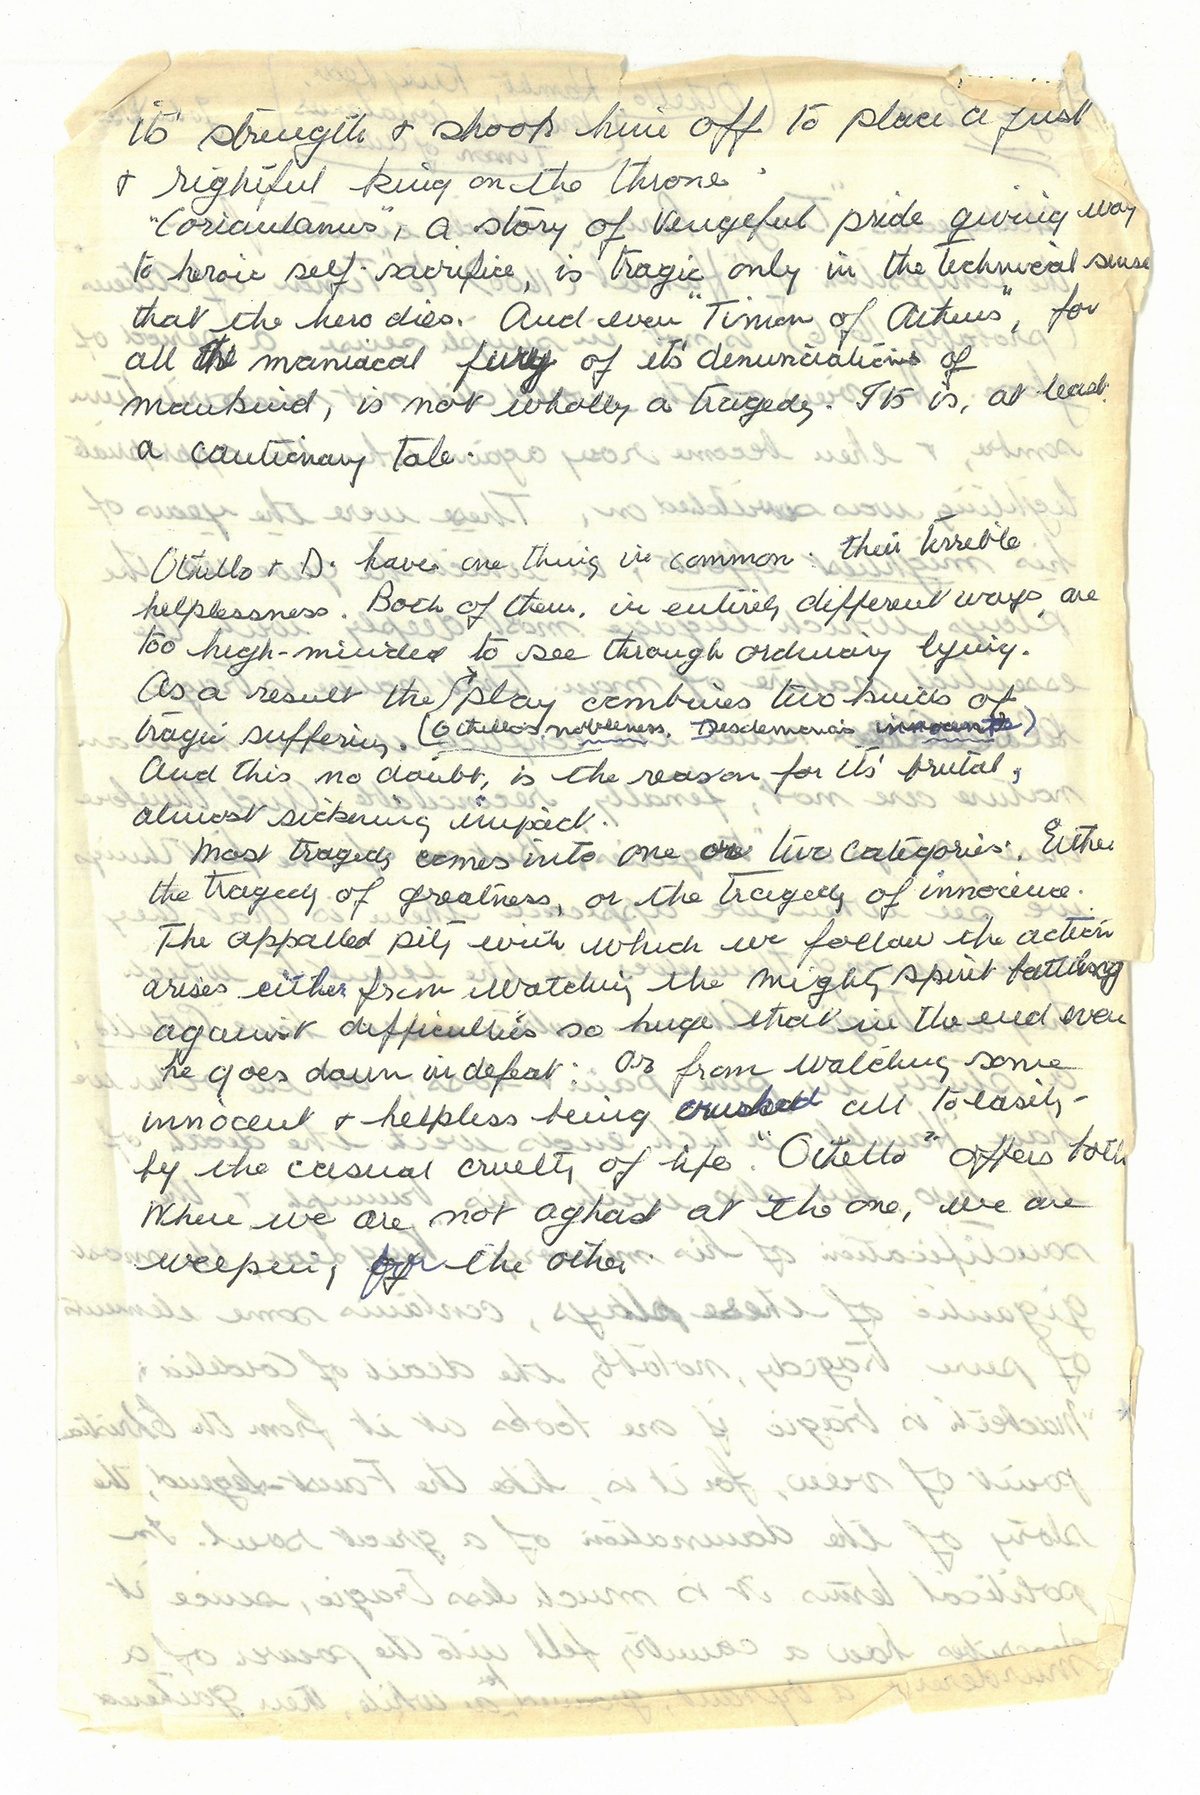 its' strength & shook him off to place a just
& rightful king on the throne.
"Coriaulanus", a story of vengeful pride giving way
to heroic self-sacrifice, is tragic only in the technical sense
that the hero dies. And even "Timon of Athens", for
all the maniacal fury of its' denunciations of
mankind, is not wholly a tragedy. Its is, at least
a cautionary tale.
Othello & D. have one thing in common: their terrible
helplessness. Both of them, in entirely different ways, are
too high-minded to see through ordinary lying.
As a result the play combines two kinds of
tragic suffering. (Othello's nobleness. Desdemona's innocence)
And this no doubt, is the reason for its' brutal,
almost sickening impact.
Most tragedy comes into one or two categories. Either
the tragedy of greatness, or the tragedy of innocence.
The appalled pity with which we follow the action
arises either from watching the mighty spirit battling
against difficulties so huge that in the end even
he goes down in defeat: Or from watching some
innocent & helpless being crushed all to easily -
by the casual cruelty of life. "Othello" offers both
When we are not aghast at the one, we are
weeping for the other.